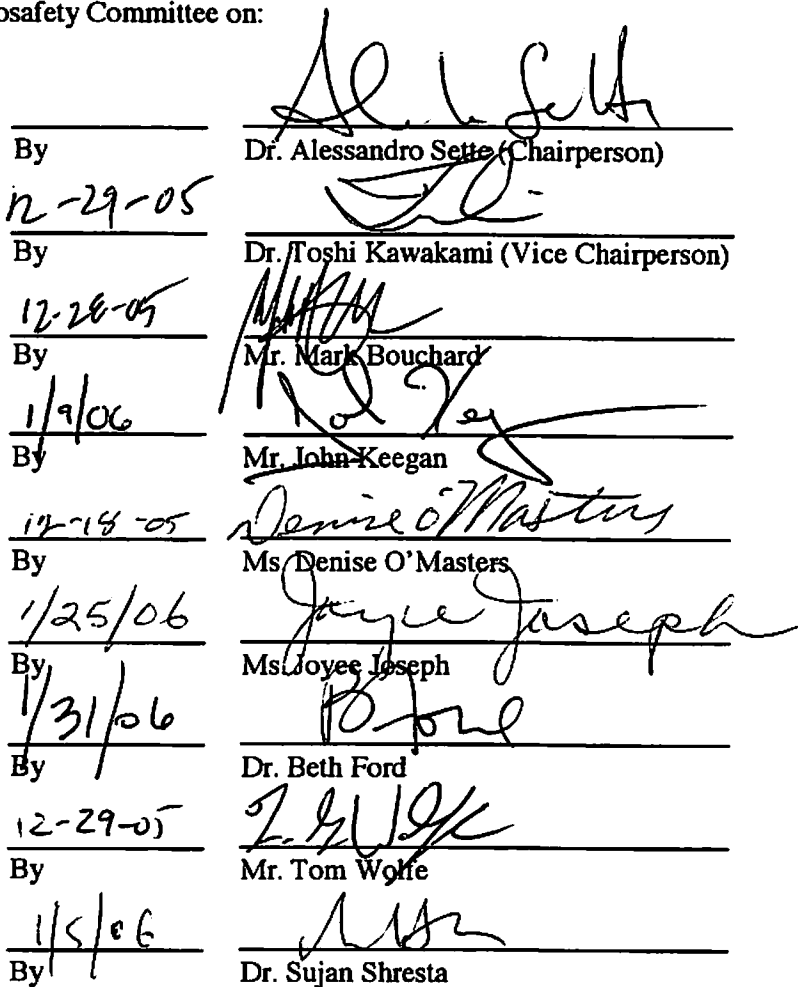 osafety Committee on:
By Dr. Alessandro Sette (Chairperson)
12-29-05
By Dr. Toshi Kawakami (Vice Chairperson)
12-28-05
By Mr. Mark Bouchard
1/9/06
By Mr. John Keegan
12-18-05 Denise O'Masters
By Ms. Denise O'Masters
1/25/06 Joyce Joseph
By Ms. Joyee Joseph
1/31/06 B Ford
By Dr. Beth Ford
12-29-05
By Mr. Tom Wolfe
1/5/06
By Dr. Sujan Shresta